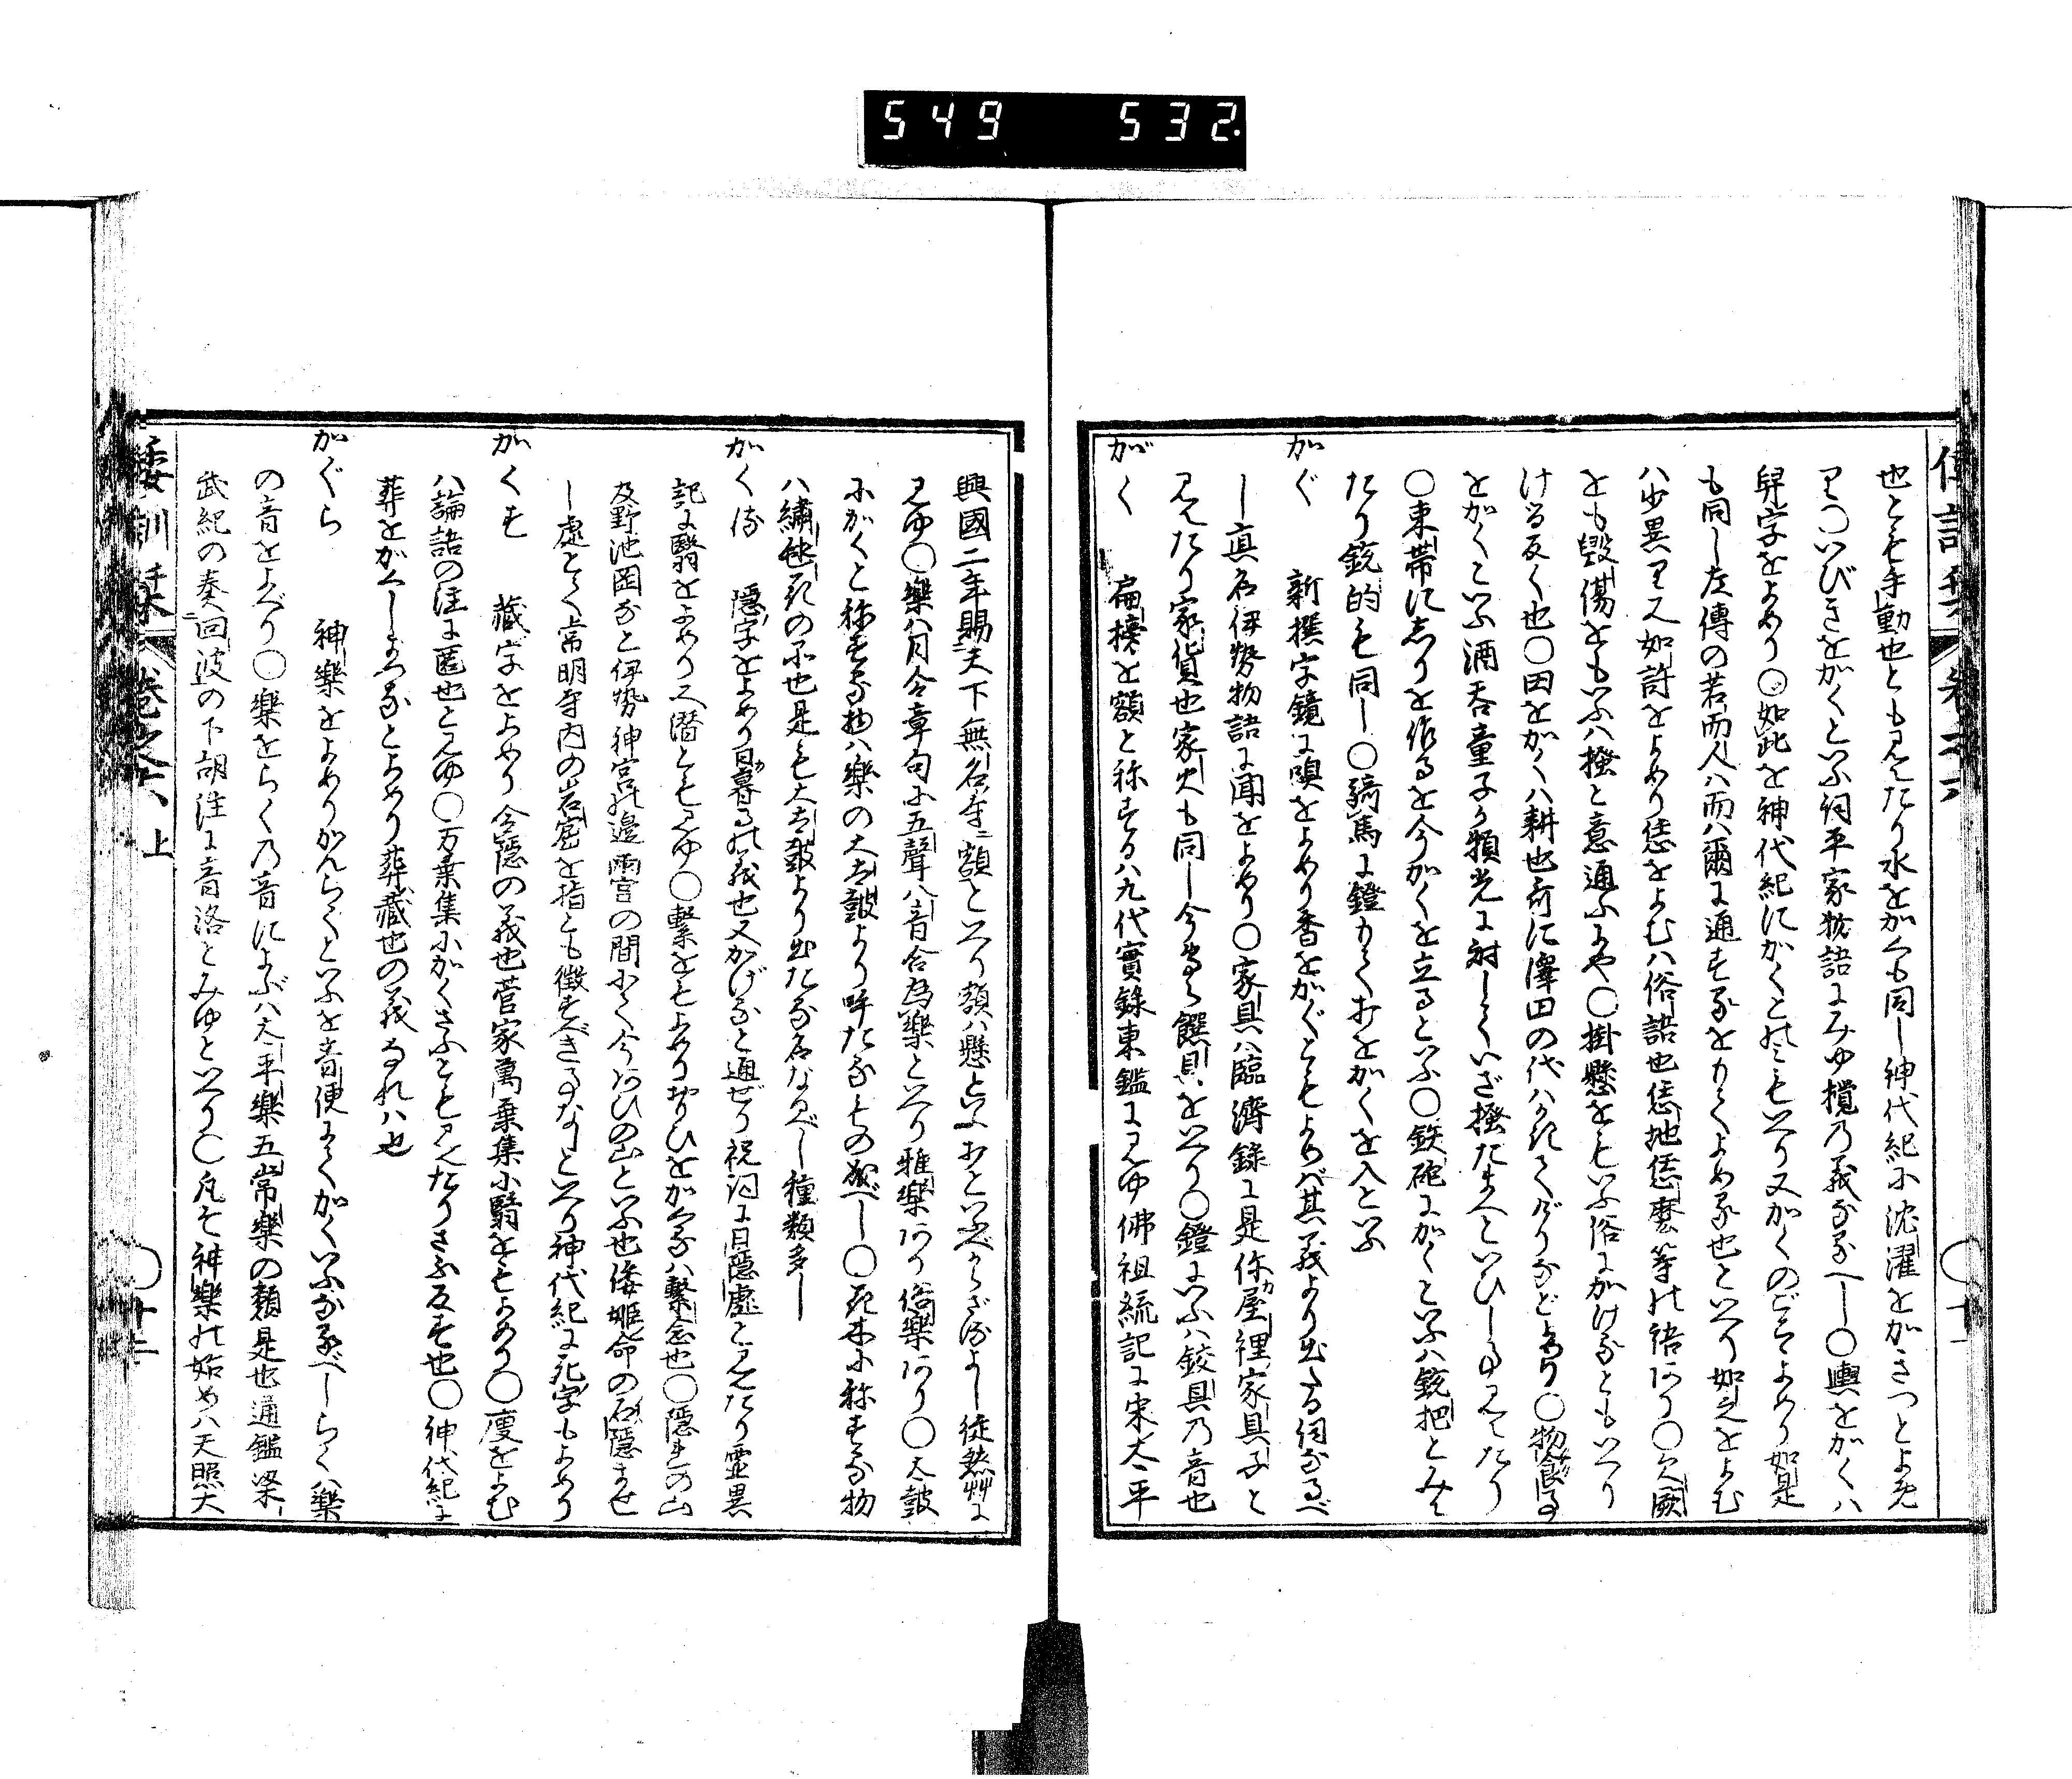 549 532.
也とも手動也ともみえたり水をかくも同し神代紀に沈濯をかきつとよめ
り〇いびきをかくといふ詞平家物語にみゆ攪の義なるへし〇輿をかくハ
舁字をよめり〇如此を神代紀にかくとのミもいへり又かくのごとよめり如是
も同し左傳の若而人ハ而ハ爾に通するをもてよめる也といへり如之をよむ
ハ少異り又如許をよめり恁をよむハ俗語也恁地恁麼等の語あり〇欠闕
とも毀傷をともいふハ撥と意通ふにや〇掛懸をもいふ俗にかけるともいへり
ける反く也〇田をかくハ耕也哥に澤田の代ハかきてけりなどよめり〇物食る
をかくといふ酒呑童子か頼光に對していざ撥たまへといひし事みえたり
〇束帯にしりを作るを今かくを立るといふ〇鉄砲にかくといふハ銃把とみえ
たり銃的も同し〇騎馬に鐙もてむをかくを入といふ
かぐ 新撰字鏡に嗅をよめり香をかぐともよめば其義より出たる詞なるべ
し真名伊勢物語に聞をよめり〇家具ハ臨濟録に是你屋裡家具子と
みえたり家貨也家火も同し今専ら饌具をいへり〇鐙にいふハ鉸具乃音也
がく 扁榜を額と称するハ九代實録東鑑にみゆ佛祖統記に宋太平
興國二年賜天下無名寺額といへり額ハ懸といふおといふべからざるよし徒然艸に
みゆ〇樂ハ月令章句に五聲八音合為樂といへり雅樂あり俗樂あり〇太鼓
にかくと称する物ハ樂の大太鼓より呼たるものなるべし〇花木に称する物
ハ繡毬花の子也是も大太鼓より出たる名なるべし種類多し
かくる 隱字をよめり日暮るの義也又かげると通ぜり祝詞に日隱處とみえたり霊異
記に翳をよめり又潜ともみゆ〇繋をもよめりおもひをかくるハ繋念也〇隠れの山
及野池岡など伊勢神宮の邊雨宮の間にて今あひの山といふ也倭姫命の石隱ませ
し處とて常明寺内の岩窟を指とも徴すべき事なしといへり神代紀に死字もよめり
かくす 藏字をよめり令隱の義也菅家萬葉集に翳をもよめり〇廋をよむ
ハ論語の注に匿也とみゆ〇万葉集にかくさふともみえたりさふ反す也〇神代紀に
葬をかくしまつるとよめり葬藏也の義なれハ也
かぐら 神樂をよめりかんらくといふを音便にてかくいふなるべしらくハ樂
の音をよべり〇樂をらく乃音によぶハ太平樂五常樂の類是也通鑑梁
武紀の奏回波の下胡注に音洛とみゆといへり〇凡そ神樂の始めハ天照大
倭訓栞 巻之六 上 〇十二